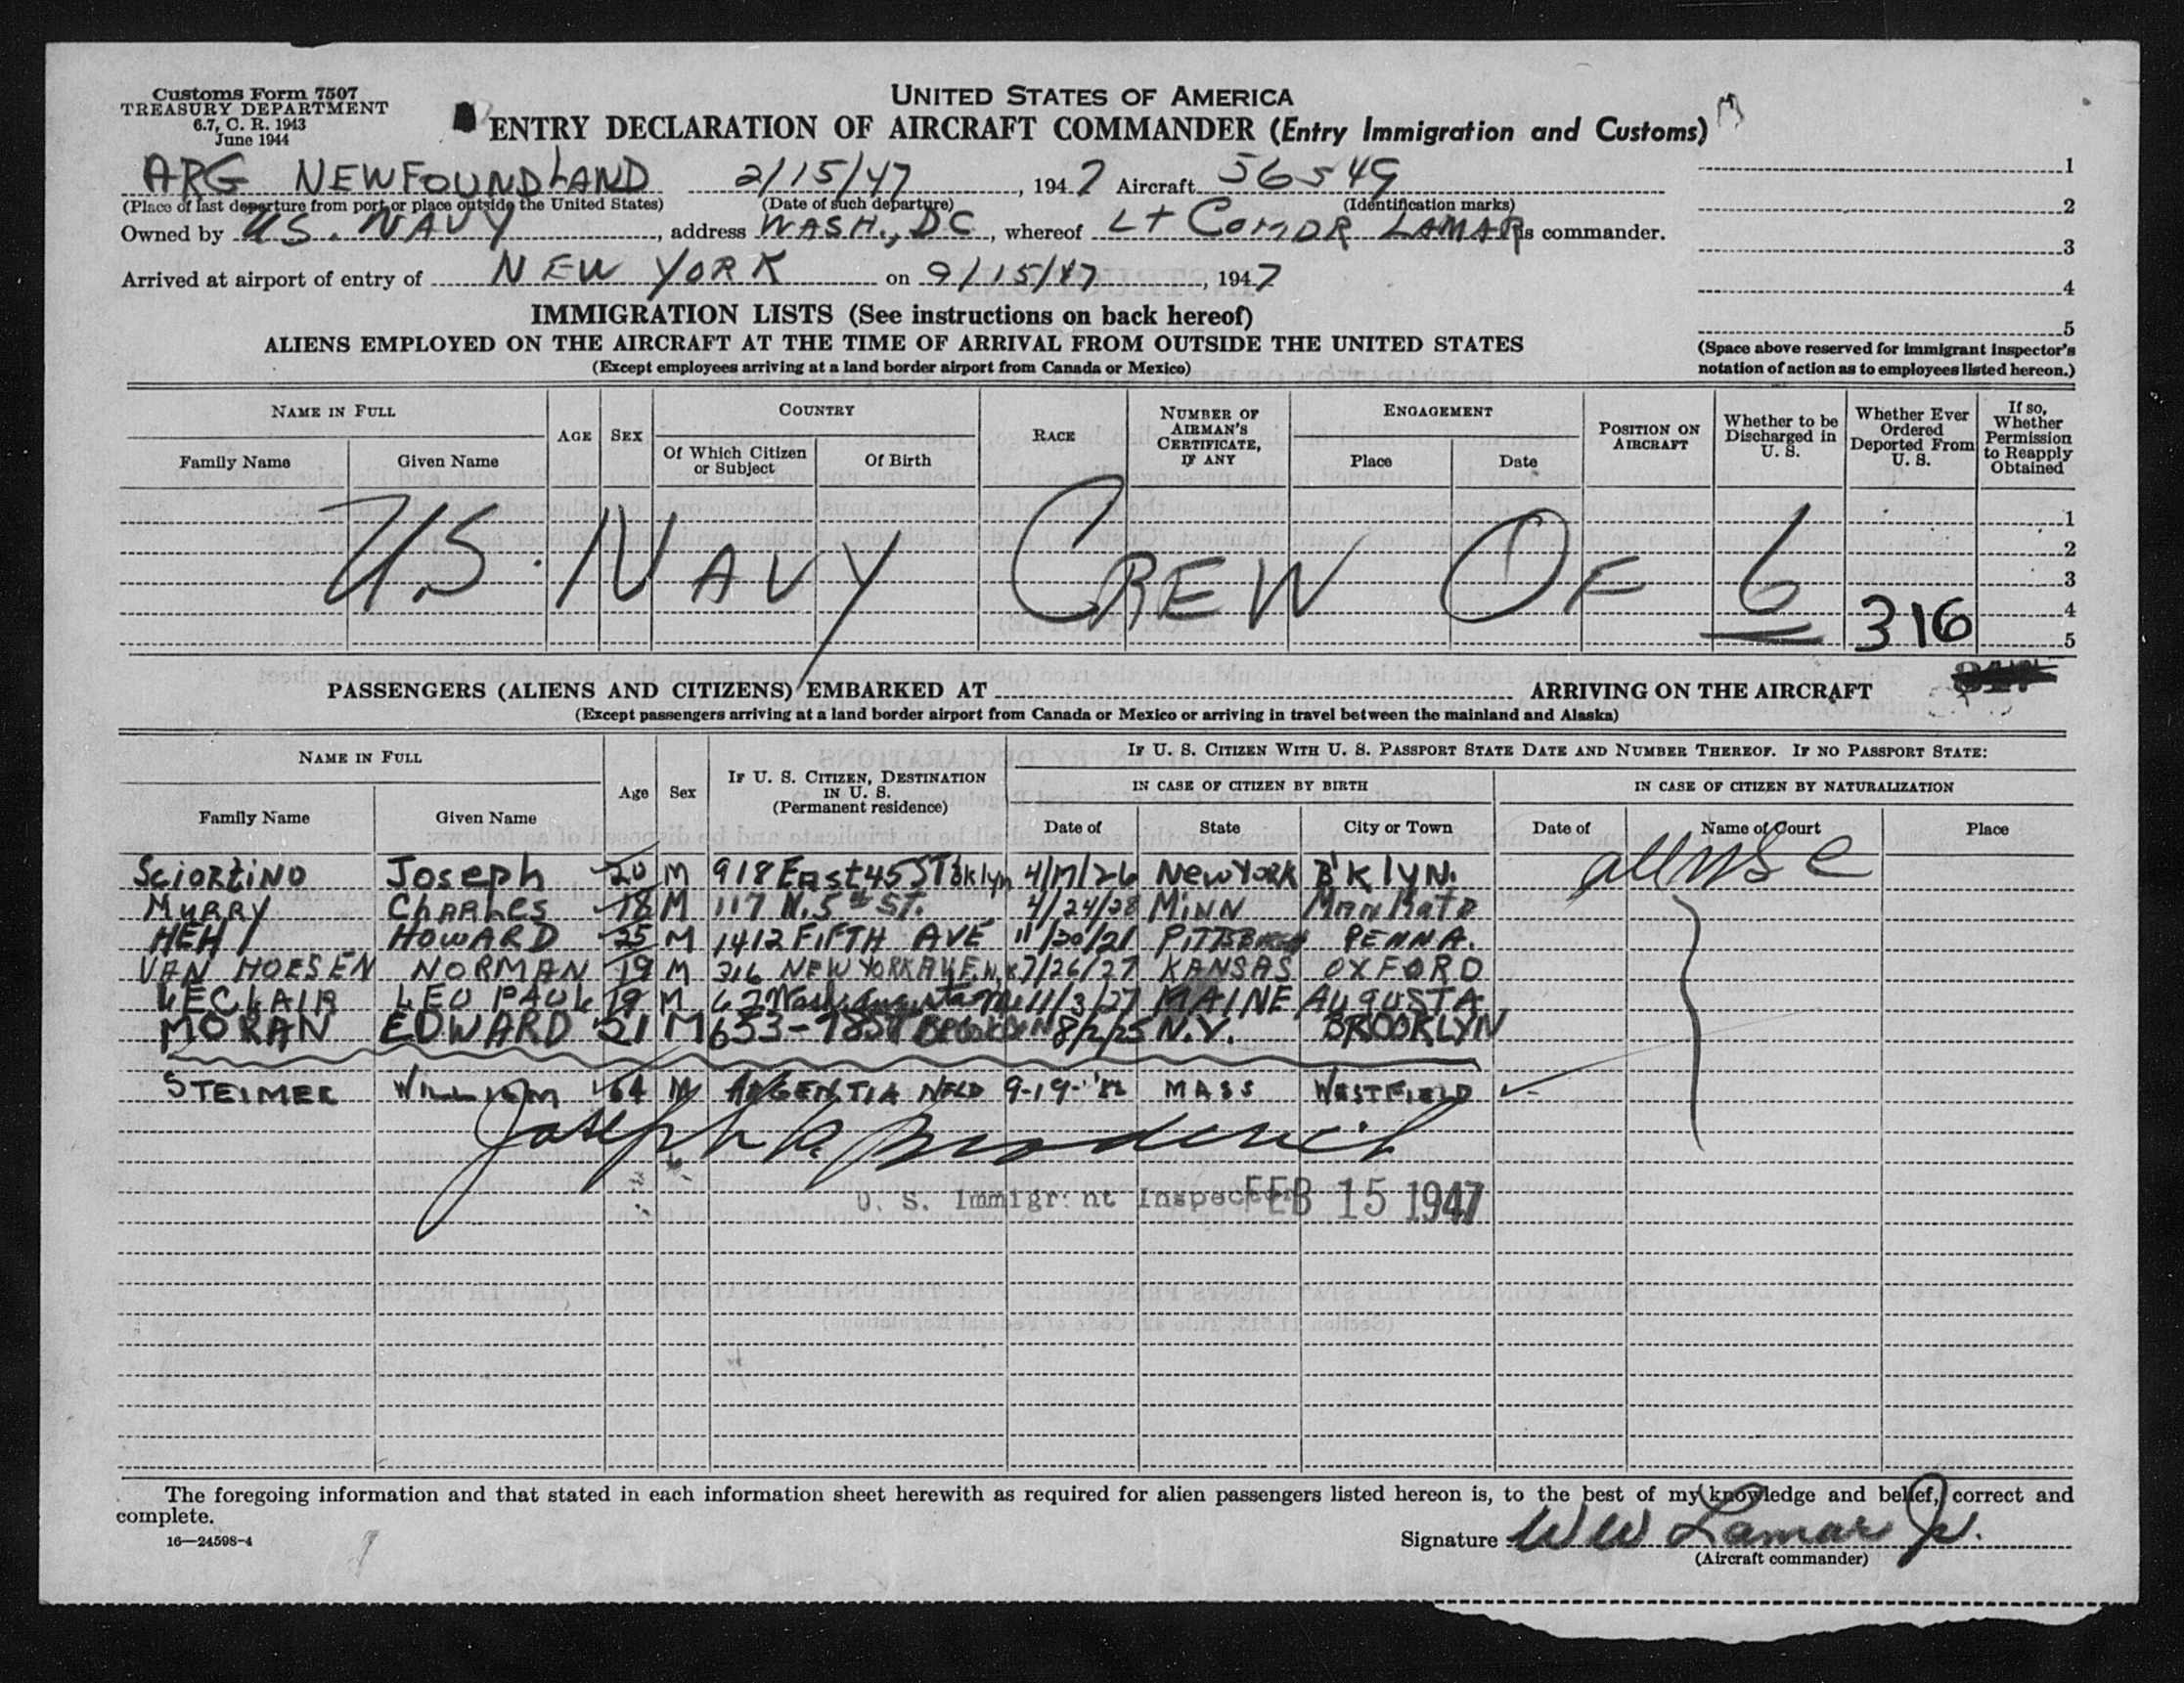 Customs Form 7507
TREASURY DEPARTMENT
6.7, C. R. 1943
June 1944
UNITED STATES OF AMERICA
ENTRY DECLARATION OF AIRCRAFT COMMANDER (Entry Immigration and Customs)
ARG NEWFOUNDLAND 2/15/47, 1947 Aircraft 56549
(Place of last departure from port or place outside the United States) (Date of such departure) (Identification marks)
Owned by U.S. NAVY, address WASH., DC, whereof LT COMDR LAMAR is commander.
Arrived at airport of entry of NEW YORK on 9/15/47, 1947
1
2
3
4
5
(Space above reserved for immigrant inspector's
notation of action as to employees listed hereon.)
IMMIGRATION LISTS (See instructions on back hereof)
ALIENS EMPLOYED ON THE AIRCRAFT AT THE TIME OF ARRIVAL FROM OUTSIDE THE UNITED STATES
(Except employees arriving at a land border airport from Canada or Mexico)
NAME IN FULL
Family Name Given Name
AGE SEX
COUNTRY
Of Which Citizen or Subject Of Birth
RACE
NUMBER OF AIRMAN'S CERTIFICATE, IF ANY
ENGAGEMENT
Place Date
POSITION ON AIRCRAFT
Whether to be Discharged in U. S.
Whether Ever Ordered Deported From U. S.
If so, Whether Permission to Reapply Obtained
1
2
3
4
5
U.S. NAVY CREW OF 6
316
PASSENGERS (ALIENS AND CITIZENS) EMBARKED AT ARRIVING ON THE AIRCRAFT
(Except passengers arriving at a land border airport from Canada or Mexico or arriving in travel between the mainland and Alaska)
NAME IN FULL
Family Name Given Name
Age Sex
IF U. S. CITIZEN, DESTINATION IN U. S.
(Permanent residence)
IF U. S. CITIZEN WITH U. S. PASSPORT STATE DATE AND NUMBER THEREOF. IF NO PASSPORT STATE:
IN CASE OF CITIZEN BY BIRTH IN CASE OF CITIZEN BY NATURALIZATION
Date of State City or Town Date of Name of Court Place
all USC
Sciortino Joseph 20 M 918 East 45 ST Bklyn 4/17/26 New York B'klyn.
MURRY CHARLES 18 M 117 N. 5th ST. 4/24/28 MINN Mankato
HEHI HOWARD 25 M 1412 FIFTH AVE 11/20/21 PITTSBURGH PENNA.
VAN HOESEN NORMAN 19 M 316 NEW YORK AVE. 7/26/27 KANSAS OXFORD
LECLAIR LEO PAUL 19 M 62 Wash. Augusta Me 11/3/27 MAINE AUGUSTA
MORAN EDWARD 21 M 653-78ST BROOKLYN 8/2/25 N.Y. BROOKLYN
STEIMER WILLIAM 64 M ARGENTIA NFLD 9-19-'82 MASS WESTFIELD
Joseph A. Broderick
U. S. Immigrant Inspector FEB 15 1947
The foregoing information and that stated in each information sheet herewith as required for alien passengers listed hereon is, to the best of my knowledge and belief, correct and
complete.
16—24598-4
Signature W W Lamar Jr.
(Aircraft commander)